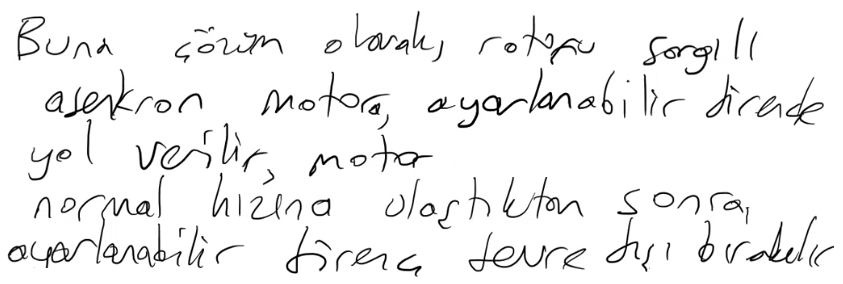 Buna çözüm olarak, rotoru sargılı
asenkron motora, ayarlanabilir dirençle
yol verilir, motor
normal hızına ulaştıktan sonra,
ayarlanabilir direnç devre dışı bırakılır